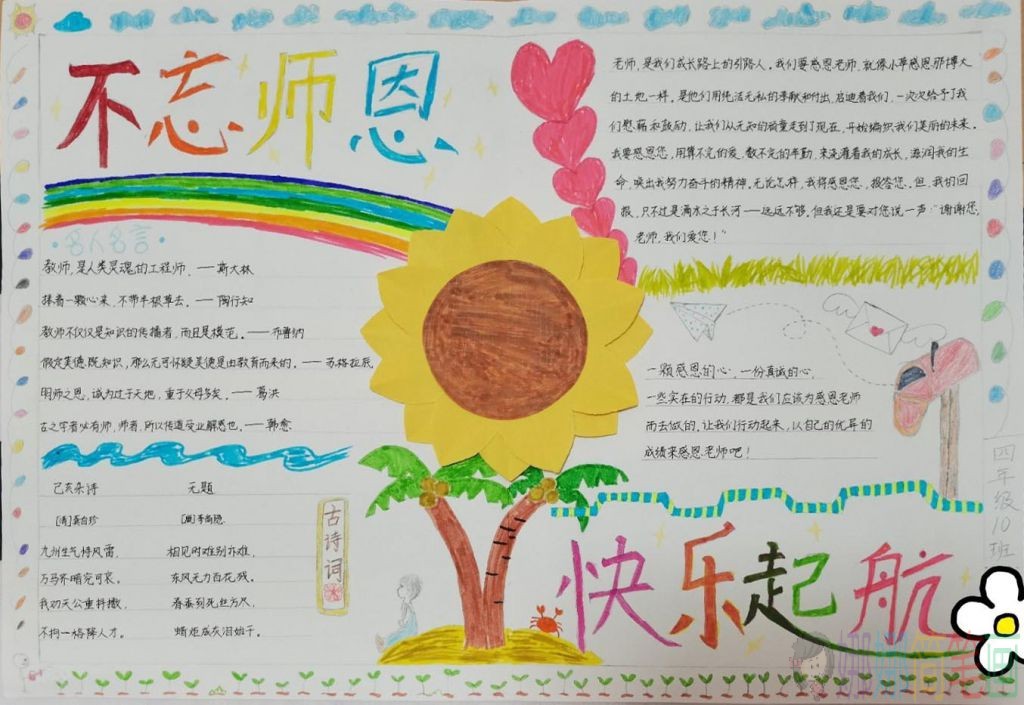 不忘师恩
老师,是我们成长路上的引路人。我们要感恩老师,就像小草感恩那博大
的土地一样。是他们用纯洁无私的奉献和付出,启迪着我们,一次次给予了我
们慰藉和鼓励,让我们从无知的孩童走到了现在,开始编织我们美丽的未来。
我要感恩您,用算不完的爱,数不完的辛勤,来浇灌着我的成长,滋润我的生
命,唤出我努力奋斗的精神。无论怎样,我将感恩您,报答您。但,我的回
报,只不过是滴水之于长河——远远不够。但我还是要对您说一声:“谢谢您,
老师,我们爱您!”
·名人名言·
教师,是人类灵魂的工程师。——斯大林
捧着一颗心来,不带半根草去。——陶行知
教师不仅仅是知识的传播者,而且是模范。——布鲁纳
假定美德既知识,那么无可怀疑美德是由教育而来的。——苏格拉底
明师之恩,诚为过于天地,重于父母多矣。——葛洪
古之学者必有师,师者,所以传道受业解惑也。——韩愈
一颗感恩的心,一份真诚的心,
一些实在的行动,都是我们应该为感恩老师
而去做的,让我们行动起来,以自己的优异的
成绩来感恩老师吧!
己亥杂诗
[清]龚自珍
九州生气恃风雷,
万马齐喑究可哀。
我劝天公重抖擞,
不拘一格降人才。
无题
[唐]李商隐
相见时难别亦难,
东风无力百花残。
春蚕到死丝方尽,
蜡炬成灰泪始干。
古诗词
快乐起航
四年级10班
简笔画